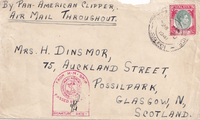 By Pan-American Clipper.
Air Mail Throughout.
Mrs. H. Dinsmor,
75, Auckland Street,
Possilpark,
Glasgow, N,
Scotland.